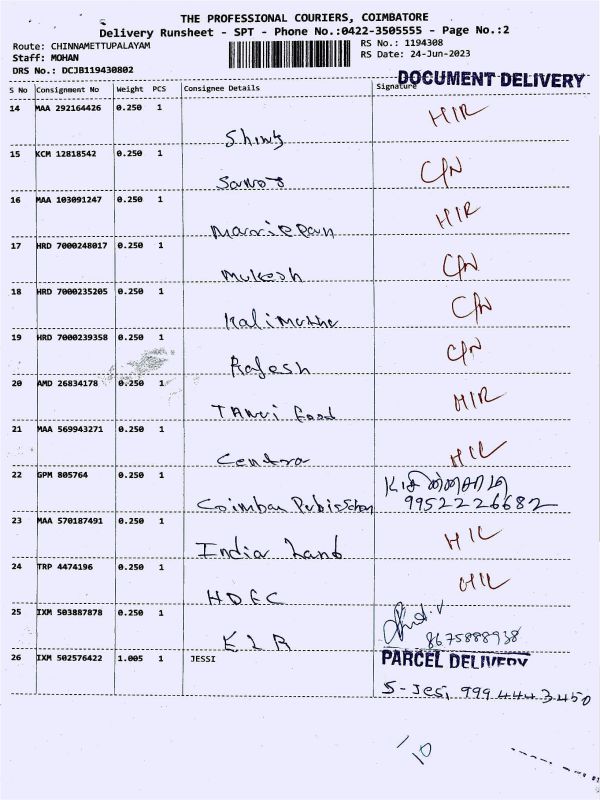 THE PROFESSIONAL COURIERS, COIMBATORE
Delivery Runsheet - SPT - Phone No.:0422-3505555 - Page No.:2
Route: CHINNAMETTUPALAYAM RS No.: 1194308
Staff: MOHAN RS Date: 24-Jun-2023
DRS No.: DCJB119430802
DOCUMENT DELIVERY
S No Consignment No Weight PCS Consignee Details Signature
14 MAA 292164426 0.250 1
15 KCM 12818542 0.250 1 C/N
16 MAA 103091247 0.250 1
Marriepan
17 HRD 7000248017 0.250 1 C/N
Mukesh
18 HRD 7000235205 0.250 1 C/N
19 HRD 7000239358 0.250 1 C/N
Rajesh
20 AMD 26834178 0.250 1
21 MAA 569943271 0.250 1
Centra
22 GPM 805764 0.250 1
Coimban 9952226682
23 MAA 570187491 0.250 1
India Land
24 TRP 4474196 0.250 1
HDFC
25 IXM 503887878 0.250 1
8675888938
ELR
PARCEL DELIVERY
26 IXM 502576422 1.005 1 JESSI
S-Jesi 9994443450
10